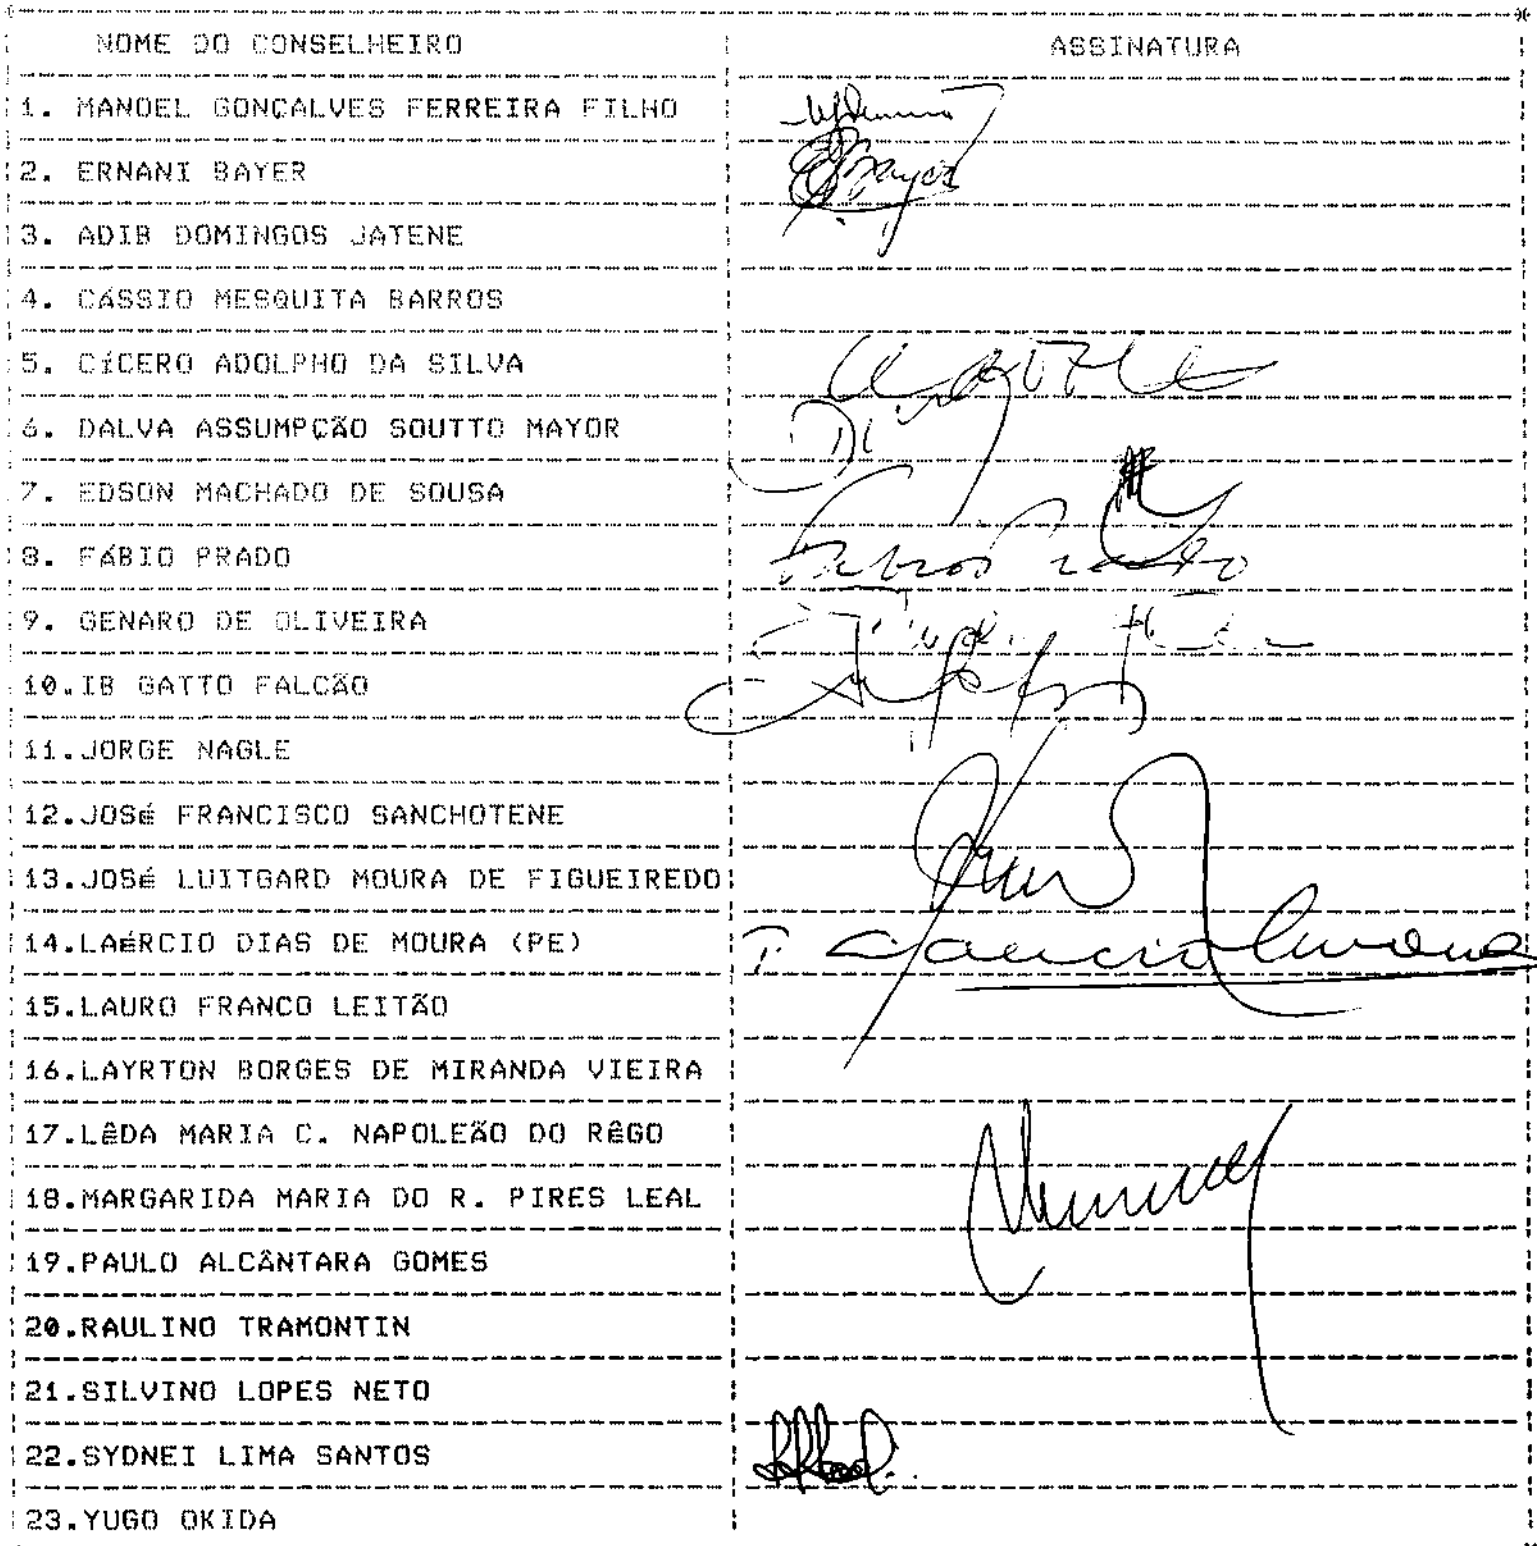 NOME DO CONSELHEIRO ASSINATURA
1. MANOEL GONÇALVES FERREIRA FILHO
2. ERNANI BAYER EBayer
3. ADIB DOMINGOS JATENE
4. CÁSSIO MESQUITA BARROS
5. CÍCERO ADOLPHO DA SILVA
6. DALVA ASSUMPÇÃO SOUTTO MAYOR
7. EDSON MACHADO DE SOUSA
8. FÁBIO PRADO Fabio Prado
9. GENARO DE OLIVEIRA
10.IB GATTO FALCÃO
11.JORGE NAGLE
12.JOSÉ FRANCISCO SANCHOTENE
13.JOSÉ LUITGARD MOURA DE FIGUEIREDO
14.LAÉRCIO DIAS DE MOURA (PE) P. Laercio Moura
15.LAURO FRANCO LEITÃO
16.LAYRTON BORGES DE MIRANDA VIEIRA
17.LÊDA MARIA C. NAPOLEÃO DO RÊGO
18.MARGARIDA MARIA DO R. PIRES LEAL
19.PAULO ALCÂNTARA GOMES
20.RAULINO TRAMONTIN
21.SILVINO LOPES NETO
22.SYDNEI LIMA SANTOS
23.YUGO OKIDA